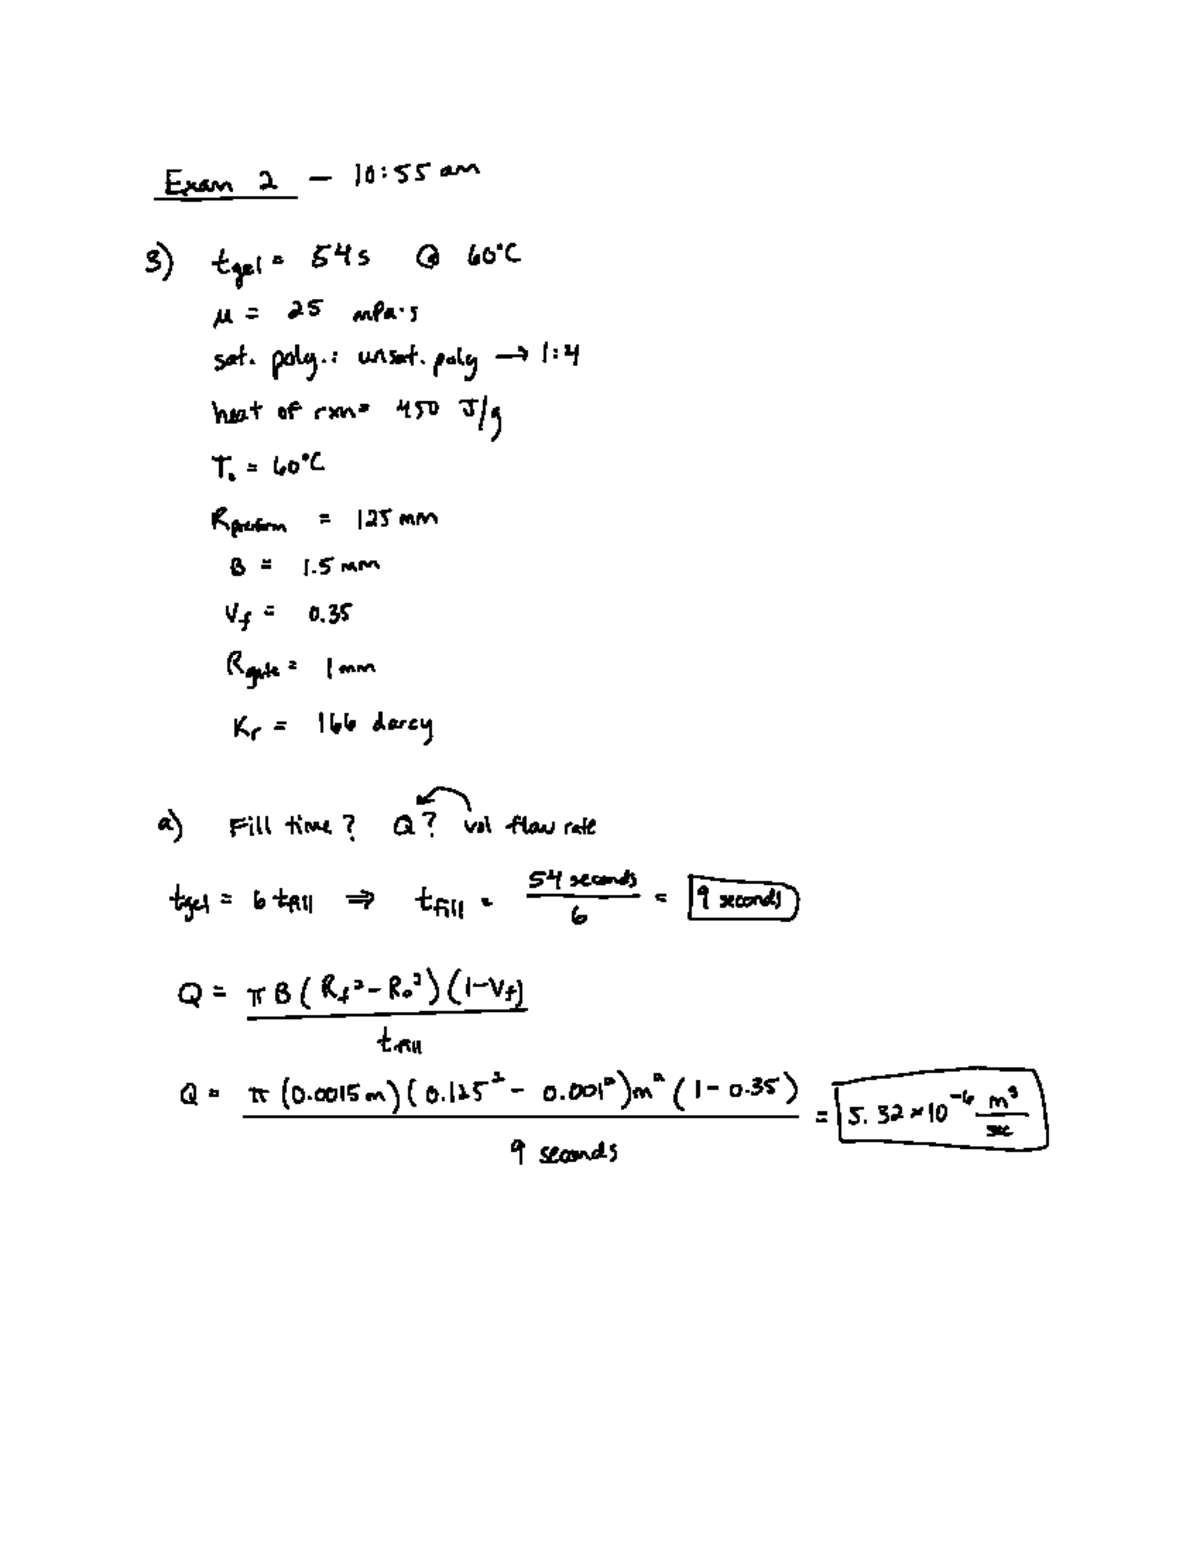 Exam 2 — 10:55 am
3) tgel = 54 s @ 60°C
μ = 25 mPa·s
sat. poly.: unsat. poly → 1:4
heat of rxn = 450 J/g
T₀ = 60°C
Rpreform = 125 mm
B = 1.5 mm
Vf = 0.35
Rgate = 1 mm
Kr = 166 darcy
a) Fill time? Q? vol flow rate
tgel = 6 tfill ⇒ tfill = 54 seconds / 6 = 9 seconds
Q = π B (Rf² - R₀²)(1-Vf) / tfill
Q = π (0.0015 m)(0.125² - 0.001²)m² (1 - 0.35) / 9 seconds = 5.32 × 10⁻⁶ m³/sec